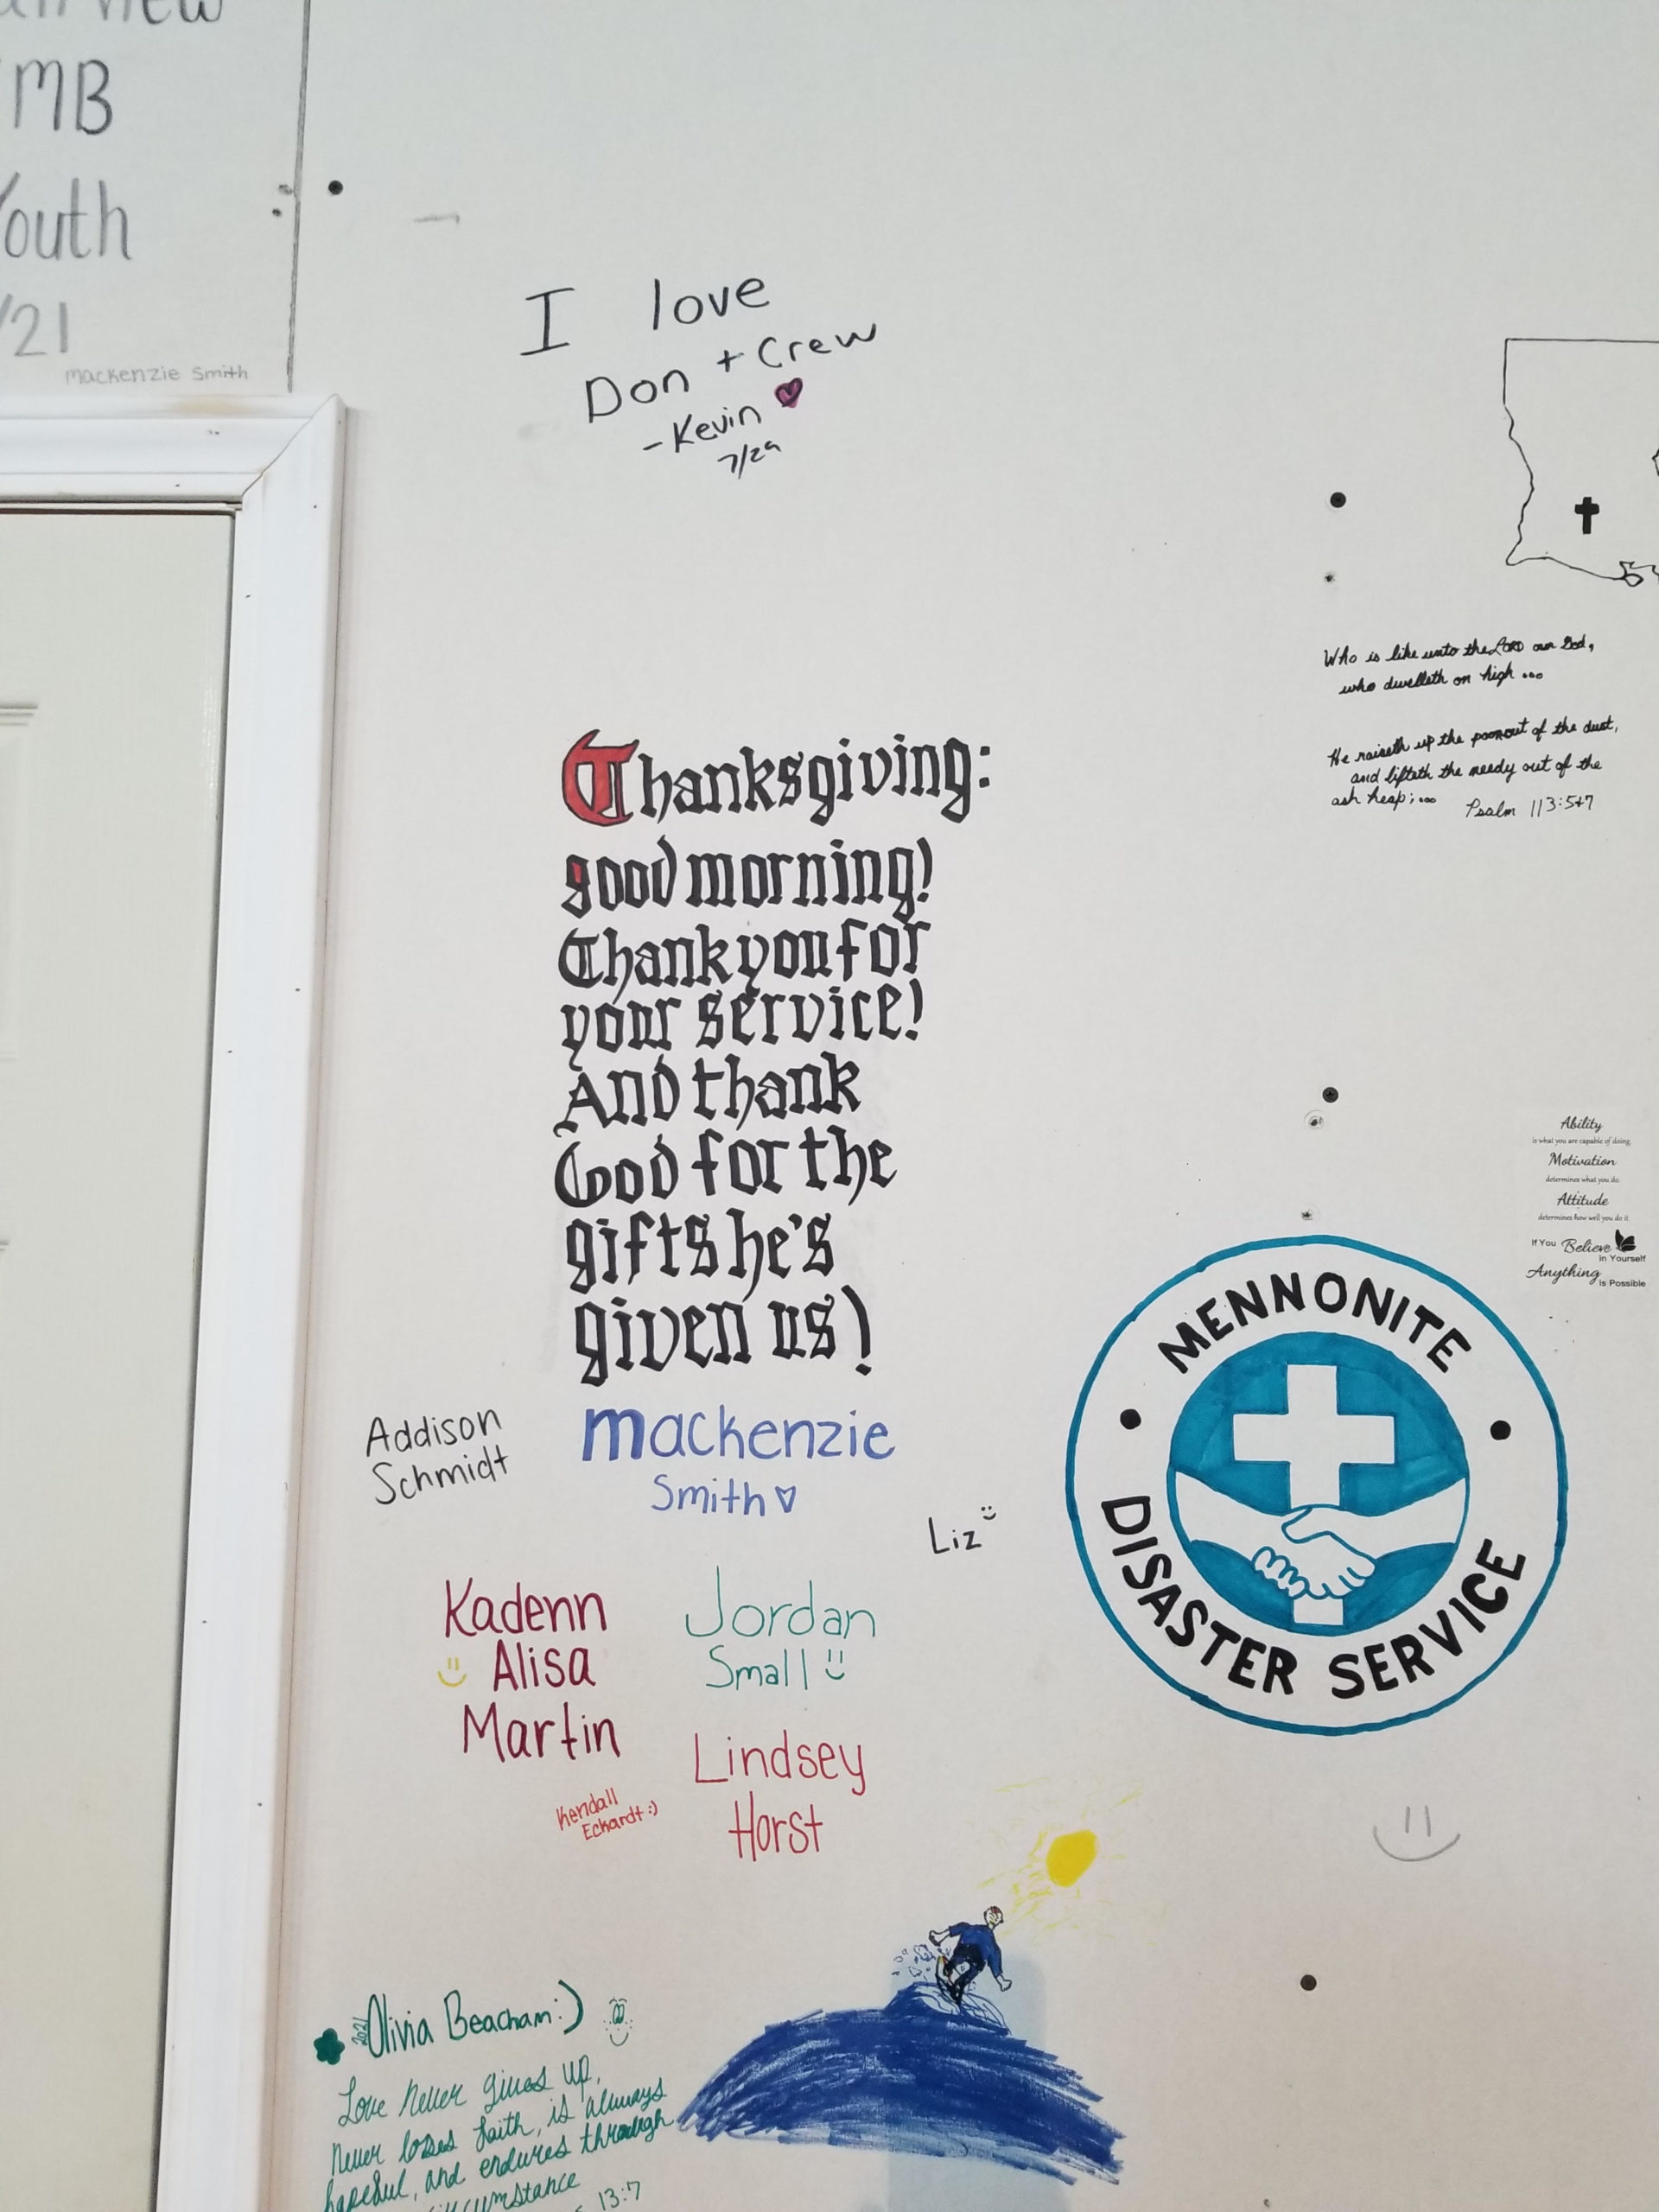 MB
Youth
/21
mackenzie Smith
I love
Don + Crew
-Kevin
7/29
Who is like unto the LORD our God,
who dwelleth on high ...
He raiseth up the poor out of the dust,
and lifteth the needy out of the
ash heap;... Psalm 113:5+7
Thanksgiving:
good morning!
Thank you for
your service!
And thank
God for the
gifts he's
given us!
Ability
is what you are capable of doing.
Motivation
determines what you do.
Attitude
determines how well you do it.
If You Believe
in Yourself
Anything is Possible
MENNONITE
DISASTER SERVICE
Addison
Schmidt
mackenzie
Smith
Liz
Kadenn
Alisa
Martin
Jordan
Small
Lindsey
Horst
Kendall
Eckardt :)
2021 Olivia Beacham :)
Love never gives up,
never loses faith, is always
hopeful, and endures through
circumstance
13:7